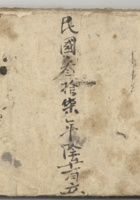 民國叁拾柒年陰六月立